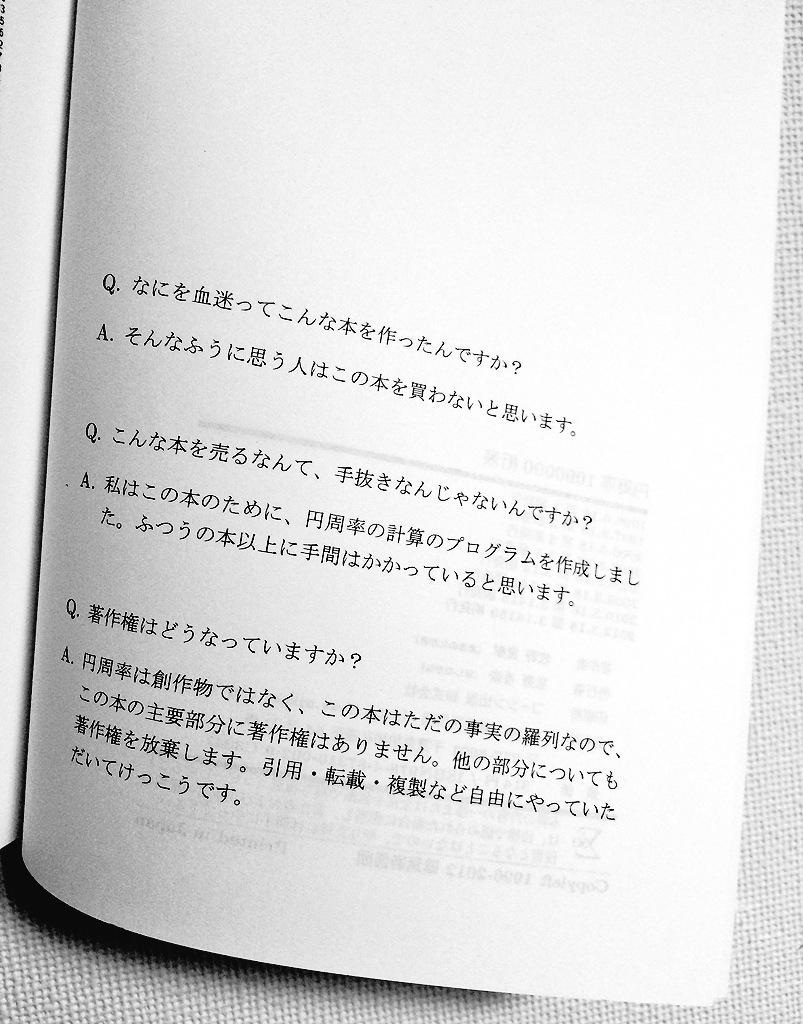 Q. なにを血迷ってこんな本を作ったんですか？
A. そんなふうに思う人はこの本を買わないと思います。
Q. こんな本を売るなんて、手抜きなんじゃないんですか？
A. 私はこの本のために、円周率の計算のプログラムを作成しまし
た。ふつうの本以上に手間はかかっていると思います。
Q. 著作権はどうなっていますか？
A. 円周率は創作物ではなく、この本はただの事実の羅列なので、
この本の主要部分に著作権はありません。他の部分についても
著作権を放棄します。引用・転載・複製など自由にやっていた
だいてけっこうです。